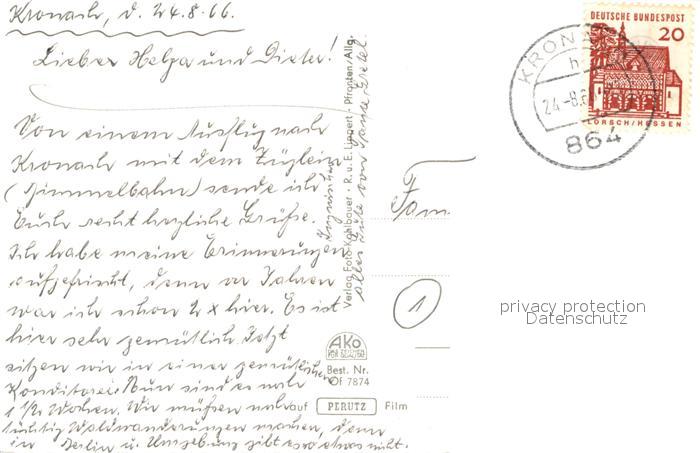 Kronach, d. 24.8.66.
Lieber Helga und Dieter!
Von einem Ausflug nach
Kronach mit dem Züglein
(Bimmelbahn) sende ich
Euch recht herzliche Grüße.
Ich habe meine Erinnerungen
aufgefrischt, denn vor Jahren
war ich schon 2 x hier. Es ist
hier sehr gemütlich. Jetzt
sitzen wir in einer gemütlichen
Konditorei. Nun sind es noch
1 1/2 Wochen. Wir müssen noch
tüchtig Waldwanderungen machen, denn
in Berlin u. Umgebung gibt es so etwas nicht.
Alles Gute von Tante Gretel.
Verlag Foto-Kohlbauer · R. u. E. Lippert · Pfronten/Allg.
AKO
Best. Nr.
Of 7874
auf PERUTZ Film
Fam
1
DEUTSCHE BUNDESPOST
20
LORSCH/HESSEN
KRONACH
h
24.-8.66
864
privacy protection
Datenschutz